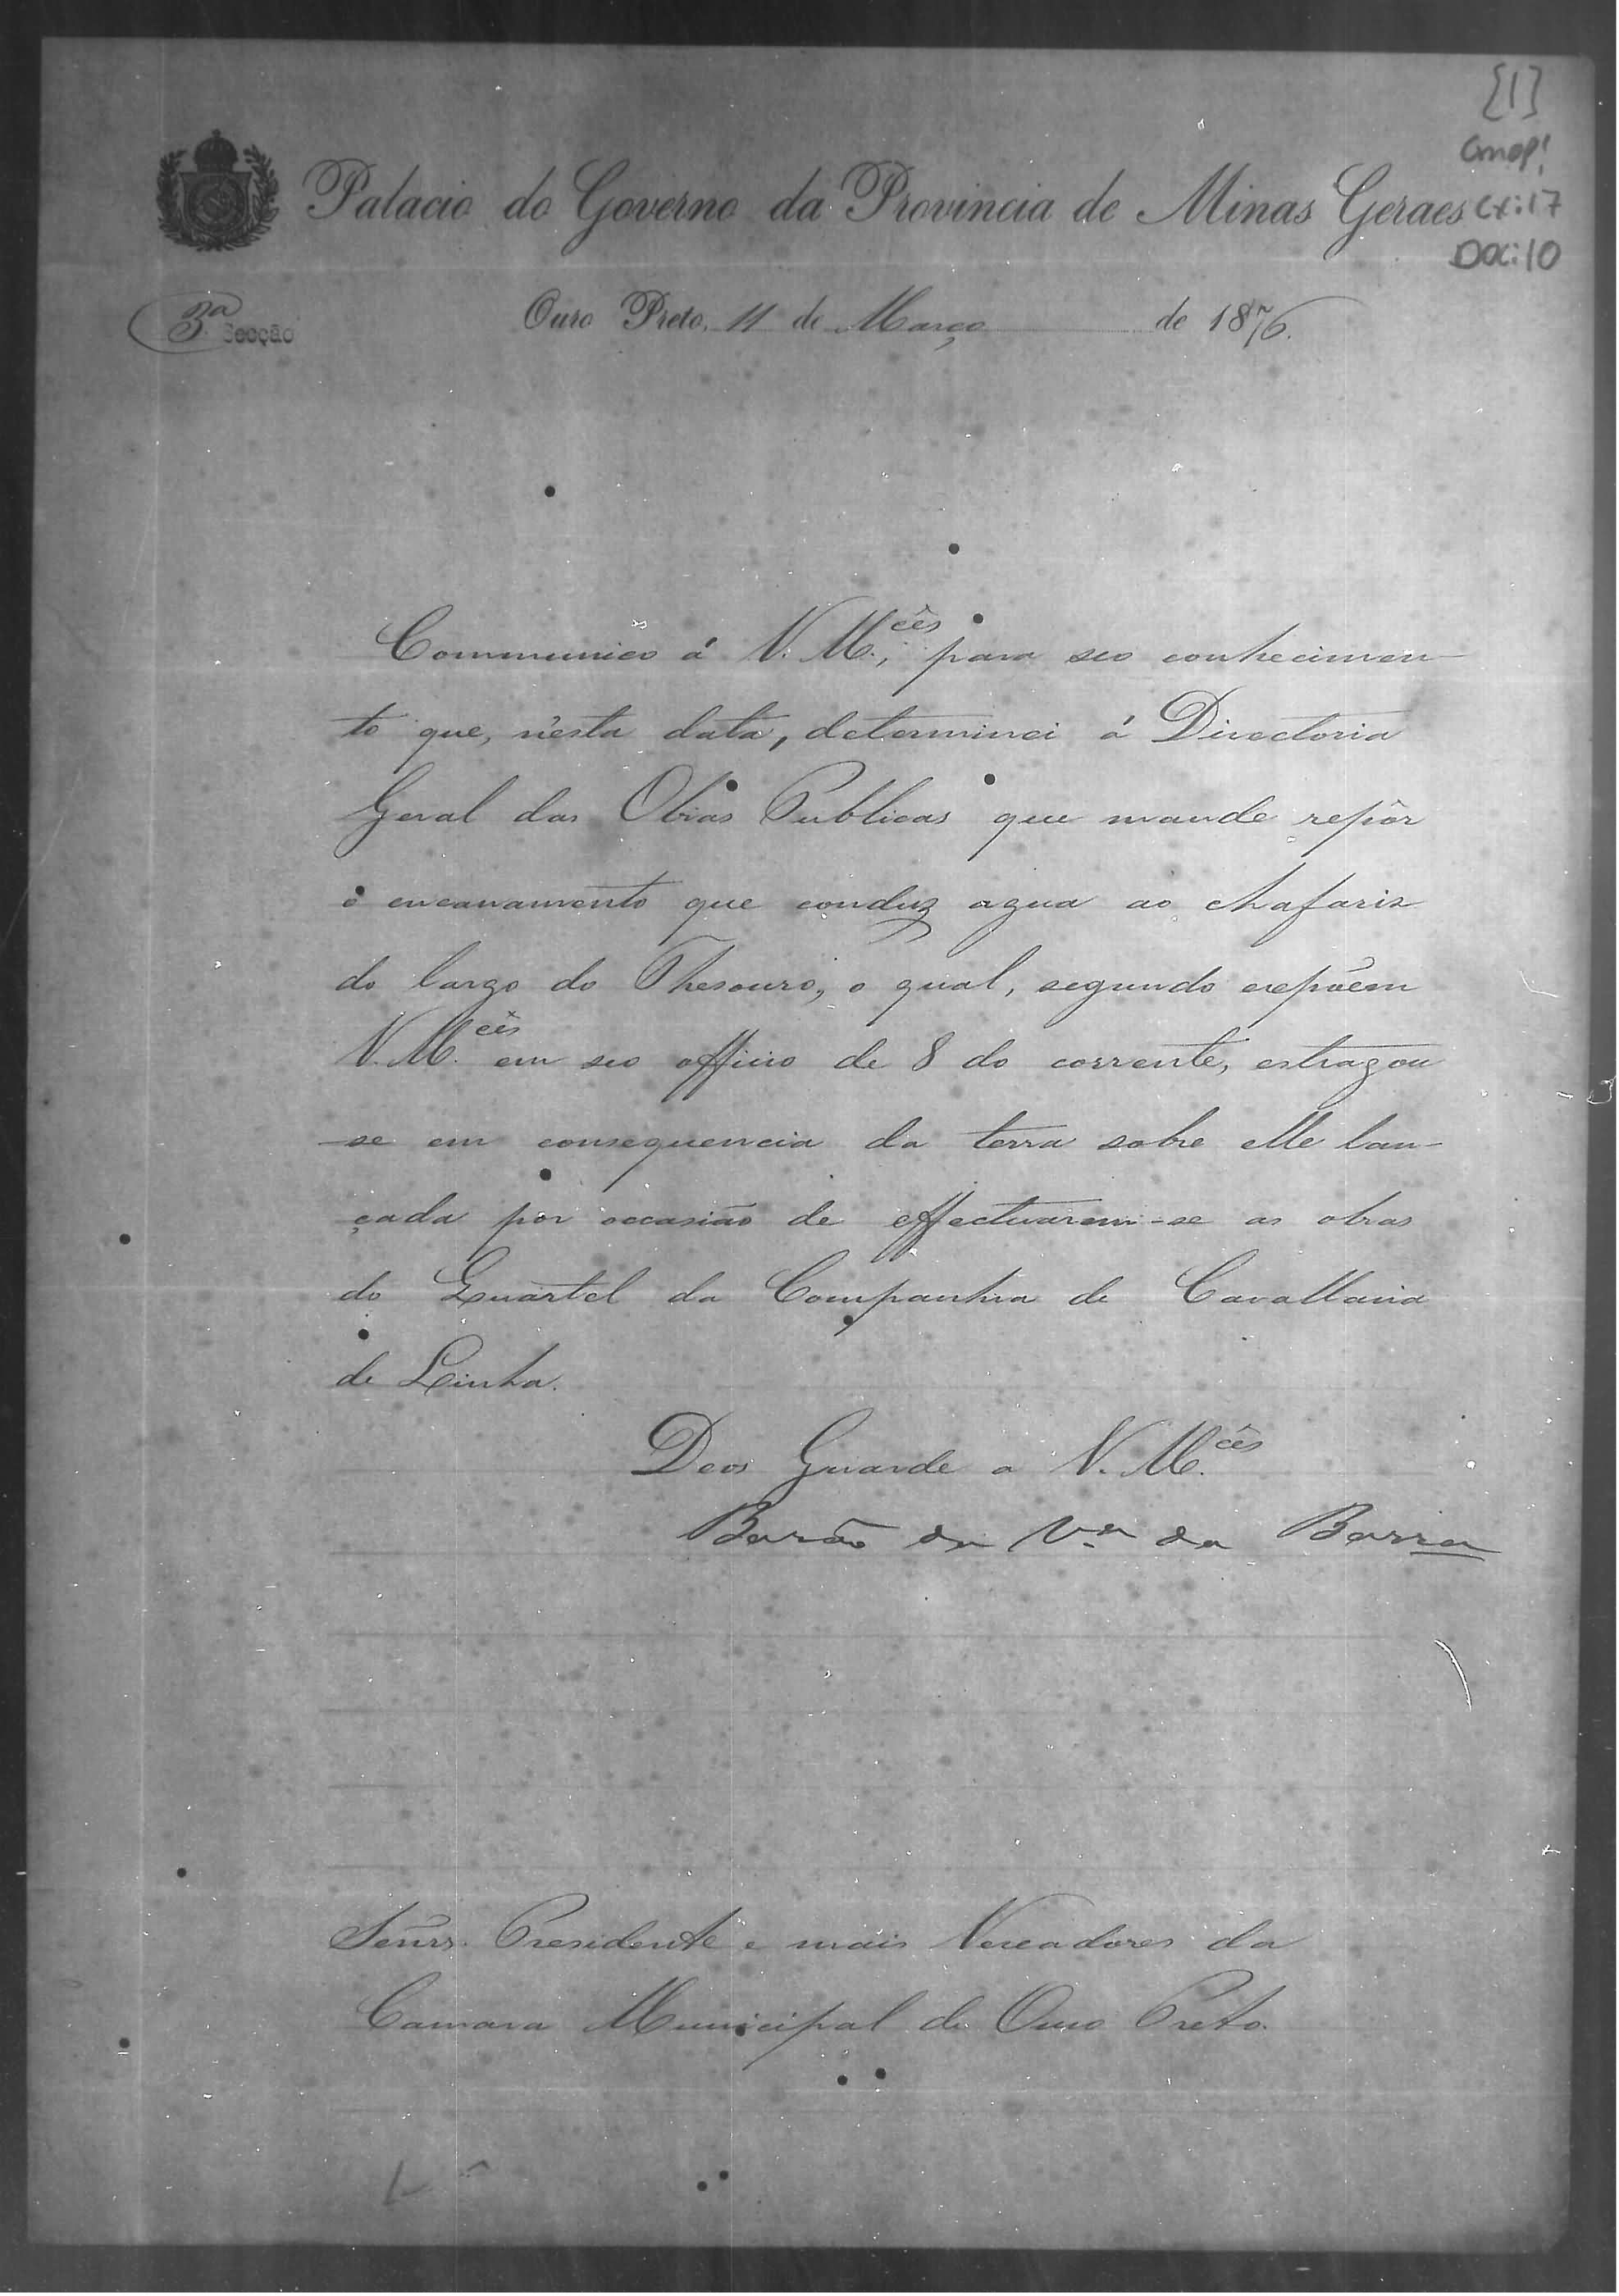 [1]
CMOP:
Cx:17
DOC:10
Palacio do Governo da Provincia de Minas Geraes
3ª Secção
Ouro Preto, 11 de Março de 1876.
Communico á V. M.cês, para seo conhecimen-
to que, n'esta data, determinei á Directoria
Geral das Obras Publicas que mande repôr
o encanamento que conduz agua ao chafariz
do largo do Thesouro, o qual, segundo expõem
V. M.cês em seo officio de 8 do corrente, estragou
-se em consequencia da terra sobre elle lan-
çada por occasião de effectuarem-se as obras
do Quartel da Companhia de Cavallaria
de Linha.
Deos Guarde a V. M.cês
Barão da Vª da Barra
Senrs. Presidente e mais Vereadores da
Camara Municipal de Ouro Preto.